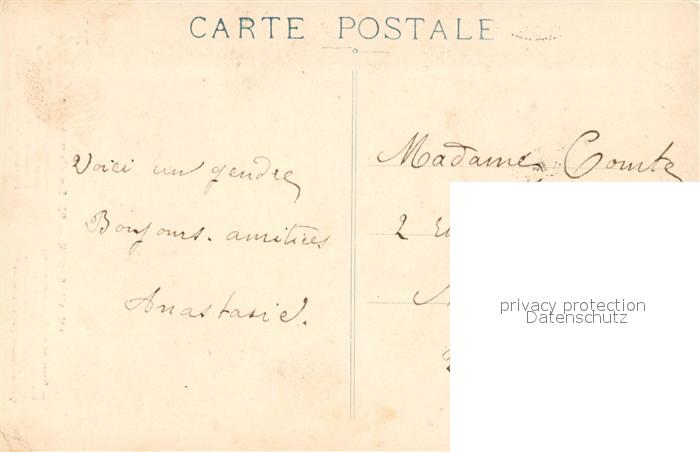 CARTE POSTALE
Voici un gendre
Bonjours. amitiées
Anastasie.
Madame Comte
2
privacy protection
Datenschutz